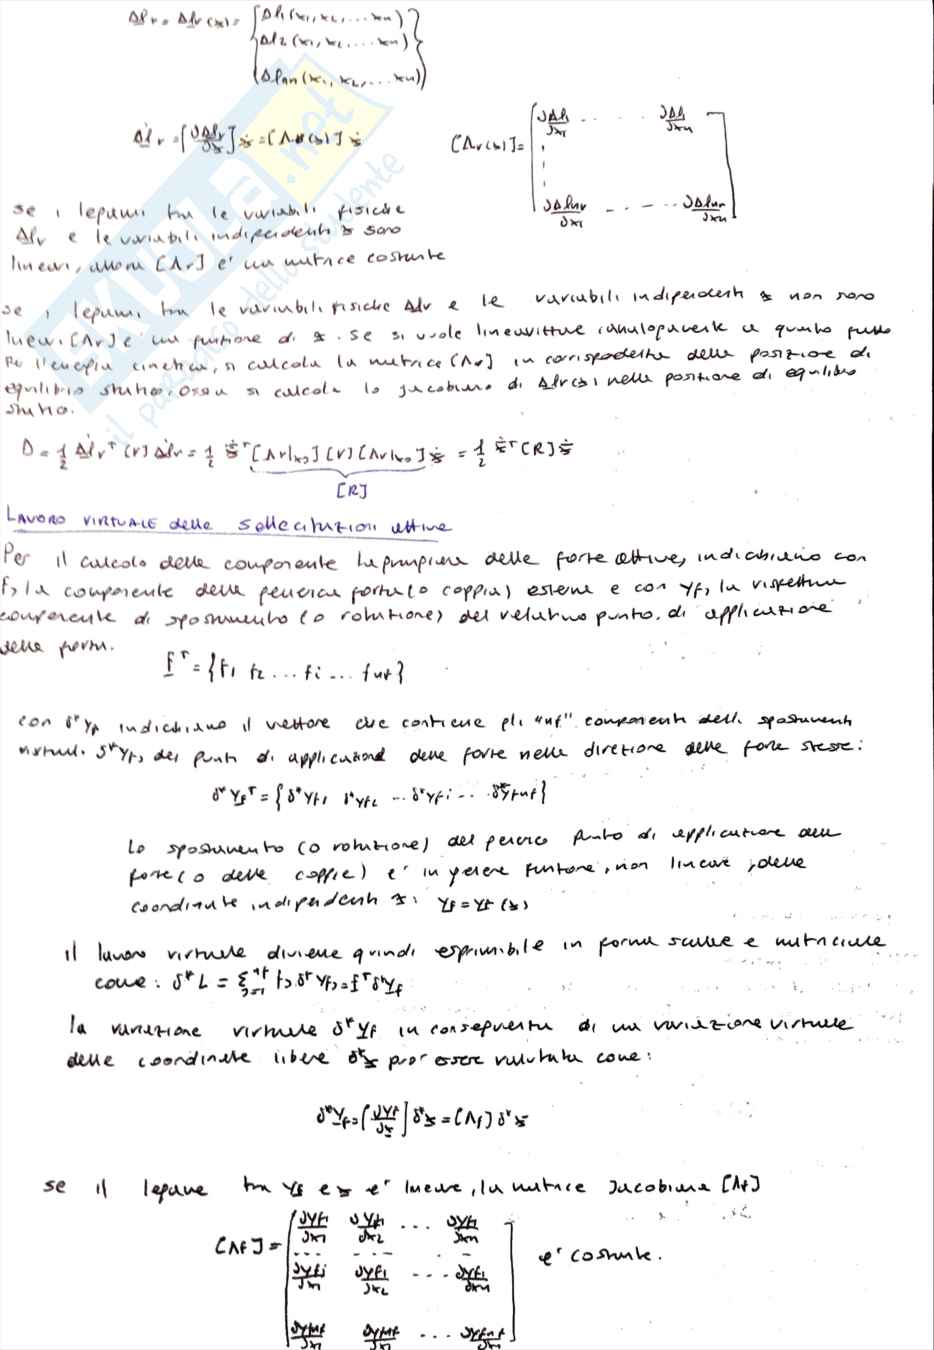 Δl_r = Δl_r(x) = {Δl1(x1, x2, ... xn)
Δl2(x1, x2, ... xn)
Δlnr(x1, x2, ... xn)}
Δl̇_r = [∂Δl_r/∂x] ẋ = [Λr(x)] ẋ
[Λr(x)] = [∂Δl1/∂x1 ..... ∂Δl1/∂xn
∂Δlnr/∂x1 ..... ∂Δlnr/∂xn]
se i legami tra le variabili fisiche
Δl_r e le variabili indipendenti x sono
lineari, allora [Λr] e' una matrice costante
se i legami tra le variabili fisiche Δl_r e le variabili indipendenti x non sono
lineari [Λr] e' una funzione di x. Se si vuole linearizzare (analogamente a quanto fatto
per l'energia cinetica, si calcola la matrice [Λr] in corrispondenza della posizione di
equilibrio statico. Ossia si calcola lo jacobiano di Δl_r(x) nella posizione di equilibrio
statico.
D = 1/2 Δl̇_r^T [r] Δl̇_r = 1/2 ẋ^T [Λr|x0] [r] [Λr|x0] ẋ = 1/2 ẋ^T [R] ẋ
[R]
LAVORO VIRTUALE delle sollecitazioni attive
Per il calcolo della componente Lagrangiana delle forze attive, indichiamo con
fj la componente della generica forza (o coppia) esterna e con yfj la rispettiva
componente di spostamento (o rotazione) del relativo punto di applicazione
della forza.
f^T = {f1 f2 ... fi ... fnf}
con δ*yf indichiamo il vettore che contiene gli "nf" componenti degli spostamenti
virtuali δ*yfj dei punti di applicazione delle forze nella direzione delle forze stesse:
δ*yf^T = {δ*yf1 δ*yf2 ... δ*yfi ... δ*yfnf}
Lo spostamento (o rotazione) del generico punto di applicazione delle
forze (o delle coppie) e' in genere funzione, non lineare, delle
coordinate indipendenti x: yf = yf(x)
il lavoro virtuale diviene quindi esprimibile in forma scalare e matriciale
come: δ*L = Σ_{j=1}^{nf} fj δ*yfj = f^T δ*yf
la variazione virtuale δ*yf in conseguenza di una variazione virtuale
delle coordinate libere δ*x puo' essere valutata come:
δ*yf = [∂yf/∂x] δ*x = [Λf] δ*x
se il legame tra yf e x e' lineare, la matrice Jacobiana [Λf]
[Λf] = [∂yf1/∂x1 ∂yf1/∂x2 ... ∂yf1/∂xn
... ... ...
∂yfi/∂x1 ∂yfi/∂x2 ... ∂yfi/∂xn
∂yfnf/∂x1 ∂yfnf/∂x2 ... ∂yfnf/∂xn]
e' costante.
SKUOLA.net
il paradiso dello studente